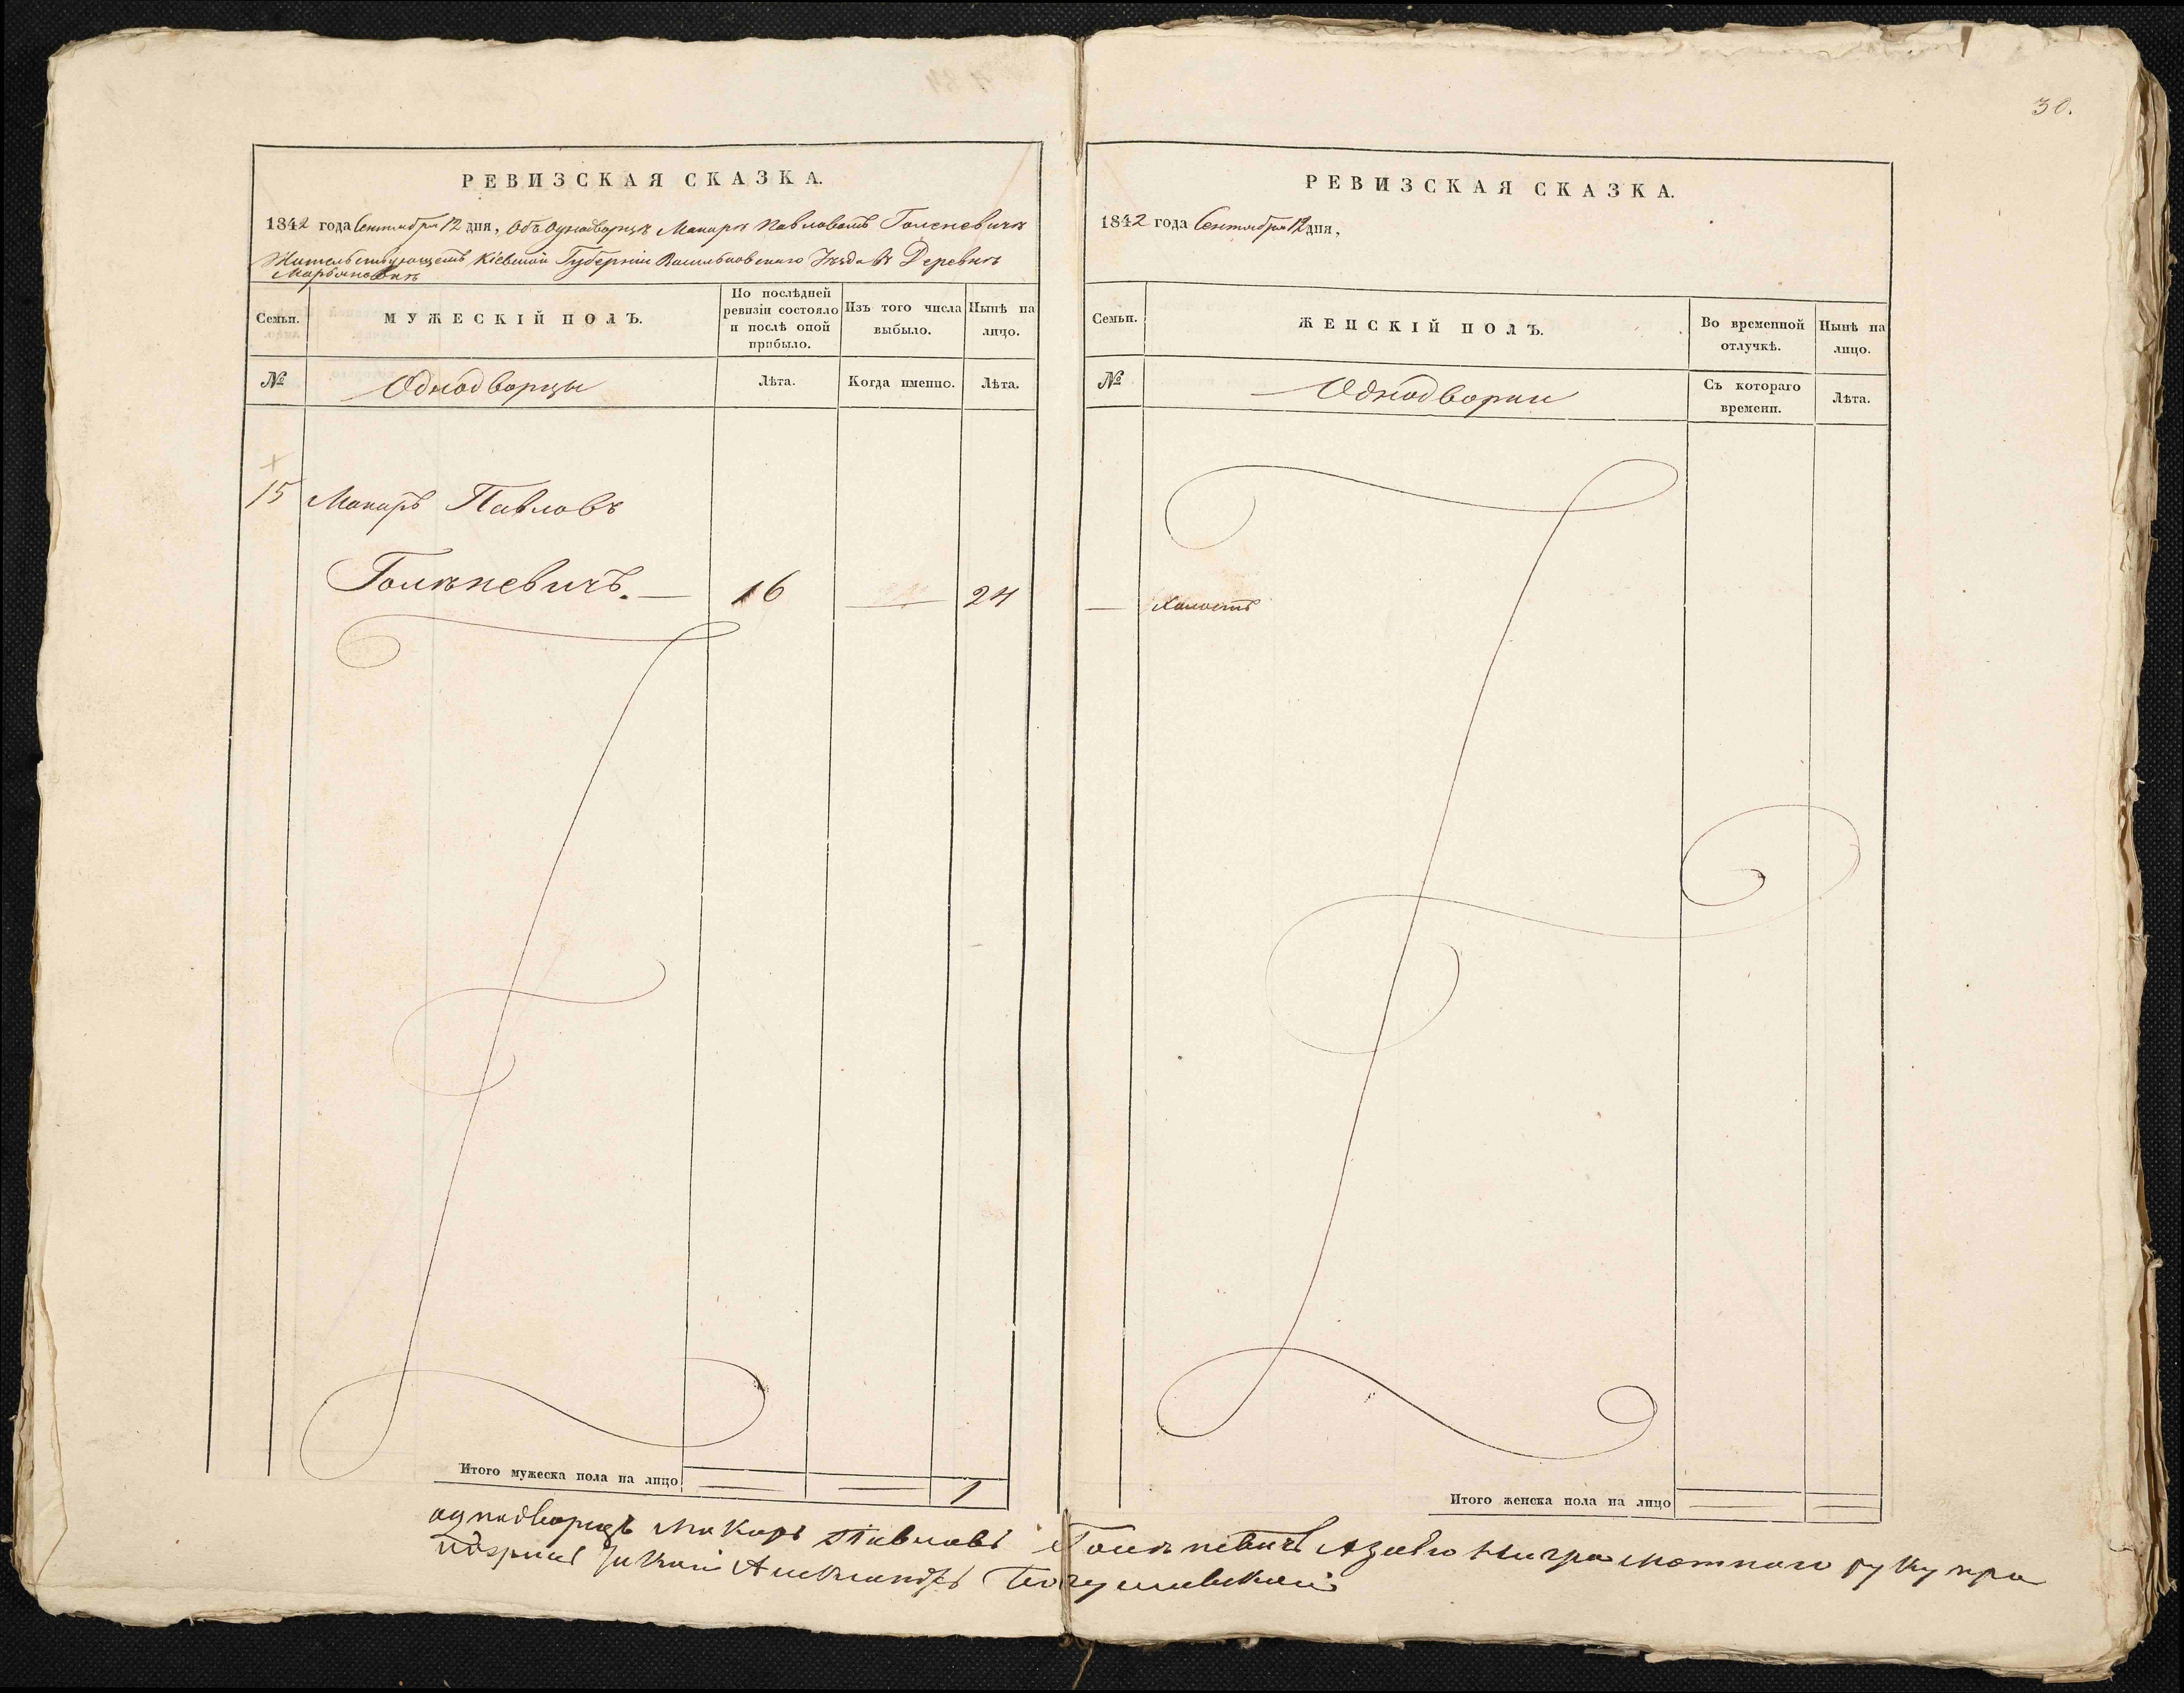 30.
РЕВИЗСКАЯ СКАЗКА.
1842 года Сентября 12 дня, Объ Однодворцѣ Макарѣ Павловомъ Голеневичѣ
Жительствующемъ Кіевской Губерніи Васильковскаго Уѣзда въ Деревнѣ
Марьяновкѣ
Семьи.
МУЖЕСКІЙ ПОЛЪ.
По послѣдней ревизіи состояло и послѣ оной прибыло.
Изъ того числа выбыло.
Нынѣ на лицо.
№
Однодворцы
Лѣта.
Когда именно.
Лѣта.
15 Макаръ Павловъ
16 24
Итого мужеска пола на лицо 1
РЕВИЗСКАЯ СКАЗКА.
1842 года Сентября 12 дня,
Семьи.
ЖЕНСКІЙ ПОЛЪ.
Во временной отлучкѣ.
Нынѣ на лицо.
№
Однодворки
Съ котораго времени.
Лѣта.
Холостъ
Итого женска пола на лицо
однодворецъ Макаръ Павловъ а за его неграмотнаго руку
Александръ